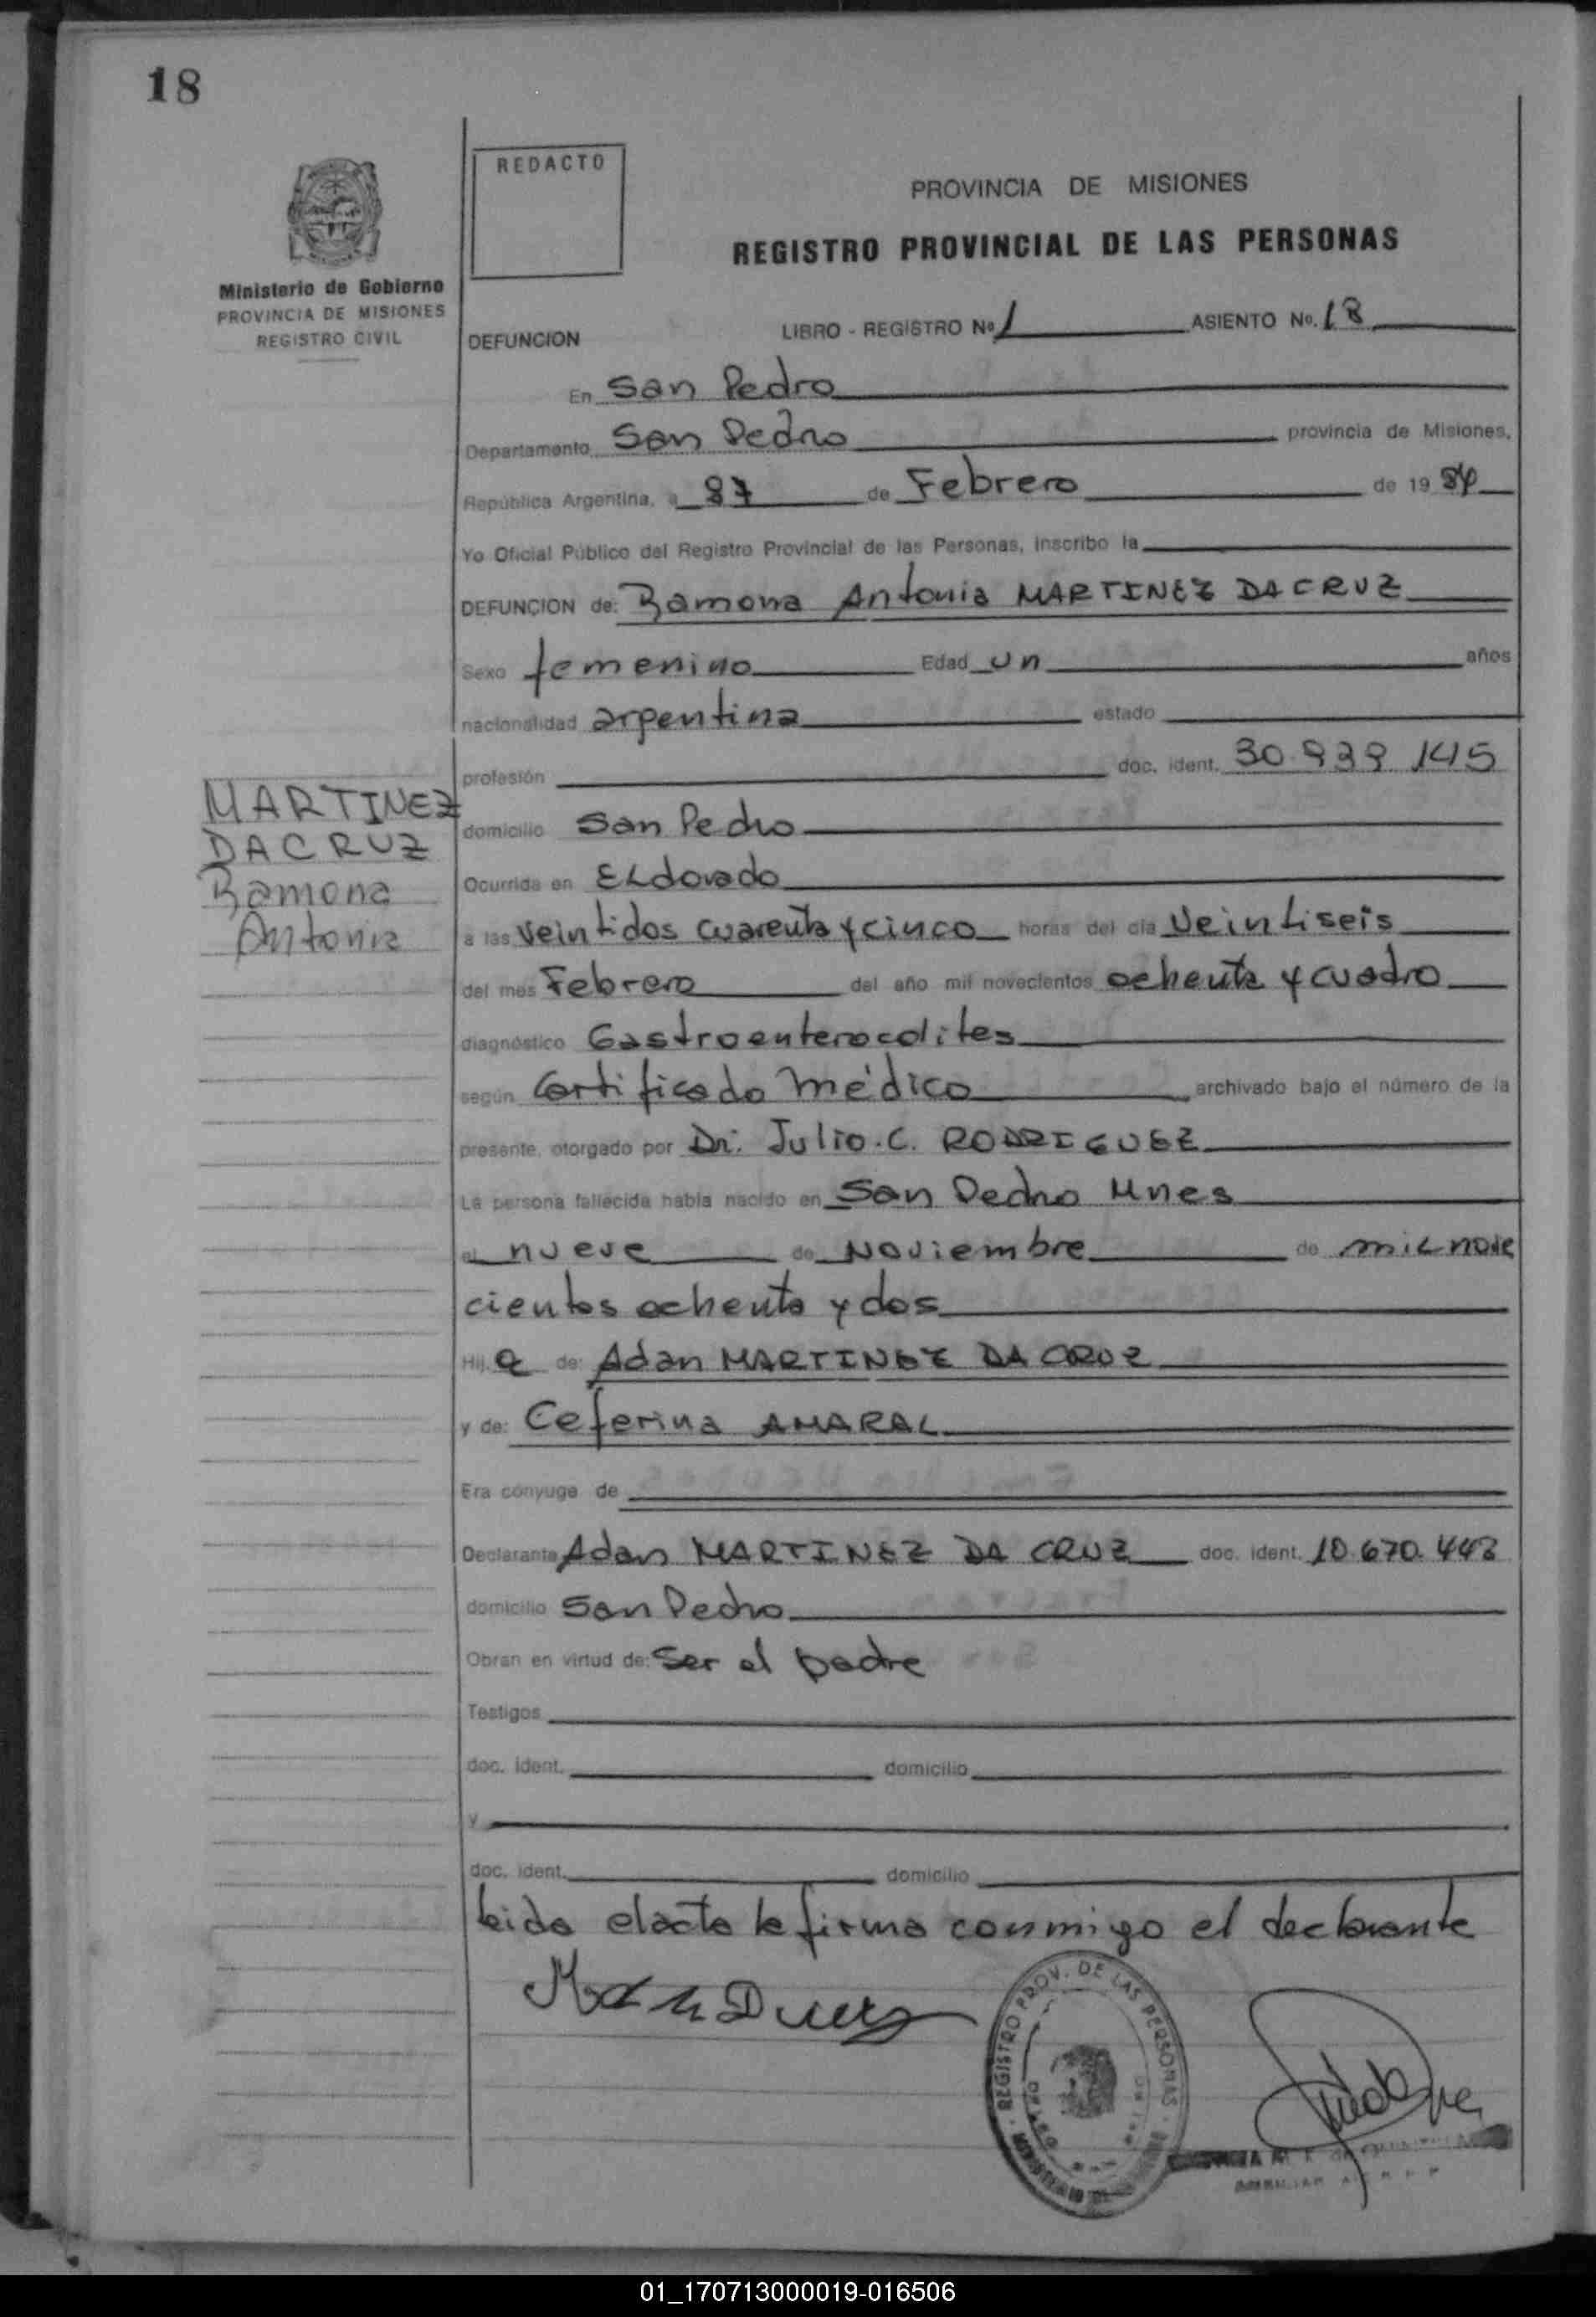 18
REDACTO
PROVINCIA DE MISIONES
REGISTRO PROVINCIAL DE LAS PERSONAS
Ministerio de Gobierno
PROVINCIA DE MISIONES
REGISTRO CIVIL
DEFUNCION LIBRO - REGISTRO No 1 ASIENTO No. 18
En San Pedro
Departamento San Pedro provincia de Misiones,
República Argentina, a 27 de Febrero de 19 84
Yo Oficial Público del Registro Provincial de las Personas, inscribo la
DEFUNCION de: Ramona Antonia MARTINEZ DACRUZ
Sexo femenino Edad un años
nacionalidad argentina estado
profesión doc. ident. 30.939.145
MARTINEZ
DACRUZ
Ramona
Antonia
domicilio San Pedro
Ocurrida en ELdorado
a las veintidos cuarenta y cinco horas del día veintiseis
del mes Febrero del año mil novecientos ochenta y cuatro
diagnóstico Gastroenterocolites
según Certificado médico archivado bajo el número de la
presente, otorgado por Dr. Julio.C. RODRIGUEZ
La persona fallecida había nacido en San Pedro Mnes
el nueve de Noviembre de mil nove
cientos ochenta y dos
Hij a de: Adan MARTINEZ DA CRUZ
y de: Ceferina AMARAL
Era cónyuge de
Declarante Adan MARTINEZ DA CRUZ doc. ident. 10.670.443
domicilio San Pedro
Obran en virtud de: Ser el padre
Testigos
doc. ident. domicilio
y
doc. ident. domicilio
leida el acta la firma conmigo el declarante
REGISTRO PROV. DE LAS PERSONAS
01_170713000019-016506